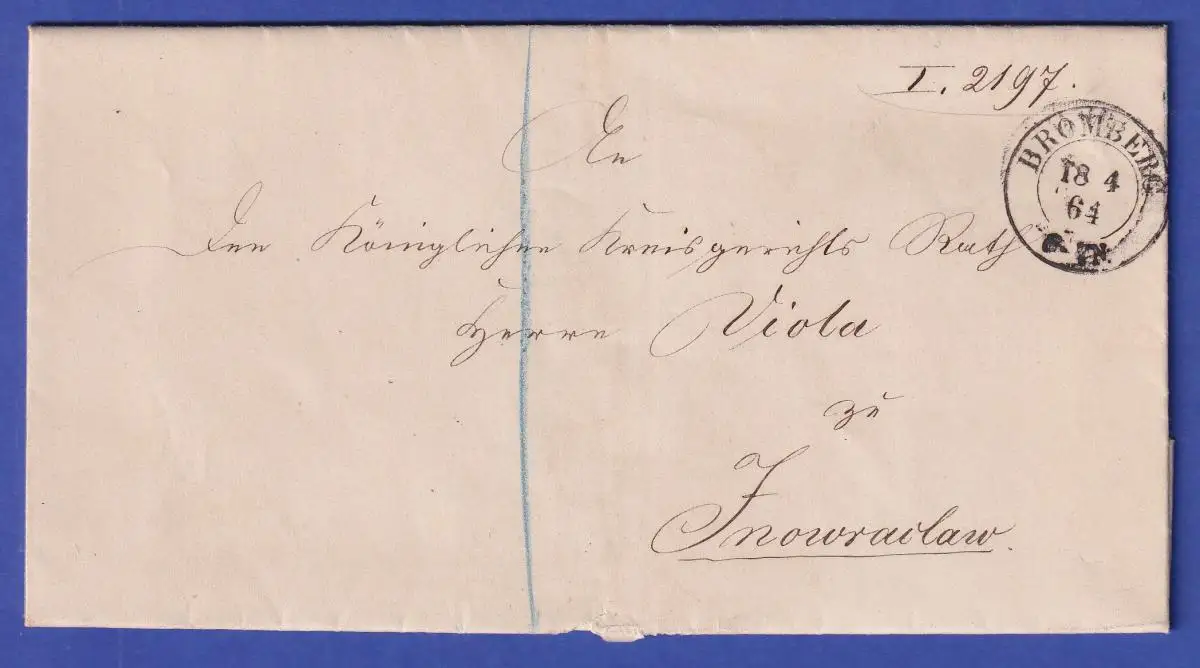 I. 2197.
BROMBERG
18 4
64
An
Den Königlichen Kreisgerichts Rath
Herrn Viola
zu
Inowraclaw.